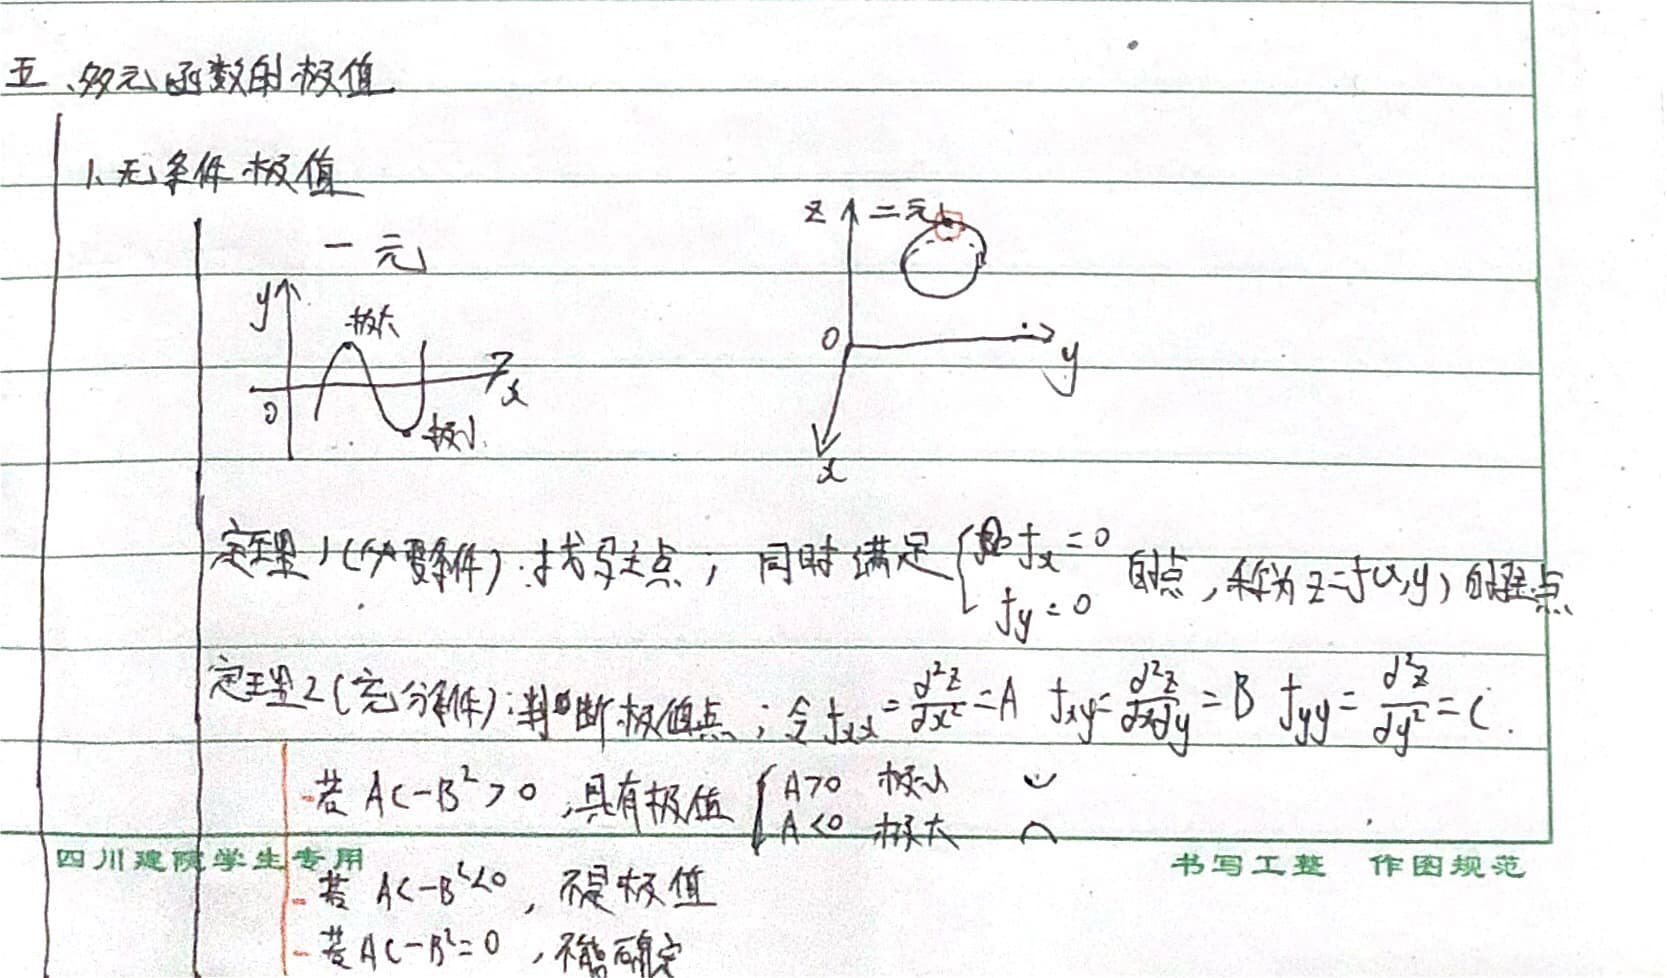 五、多元函数的极值
1、无条件极值
一元
二元
y
极大
0
x
极小
z
0
y
x
定理1(必要条件):找驻点; 同时满足{fx=0 fy=0 的点,称为z=f(x,y)的驻点
定理2(充分条件):判断极值点;令fxx=∂²z/∂x²=A fxy=∂²z/∂x∂y=B fyy=∂²z/∂y²=C.
-若 AC-B²>0,具有极值{A>0 极小 A<0 极大
四川建院学生专用 书写工整 作图规范
-若 AC-B²<0,不是极值
-若AC-B²=0,不能确定